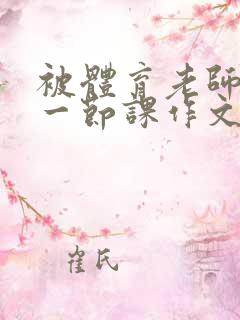 被體育老師
一節課作文
崔氏